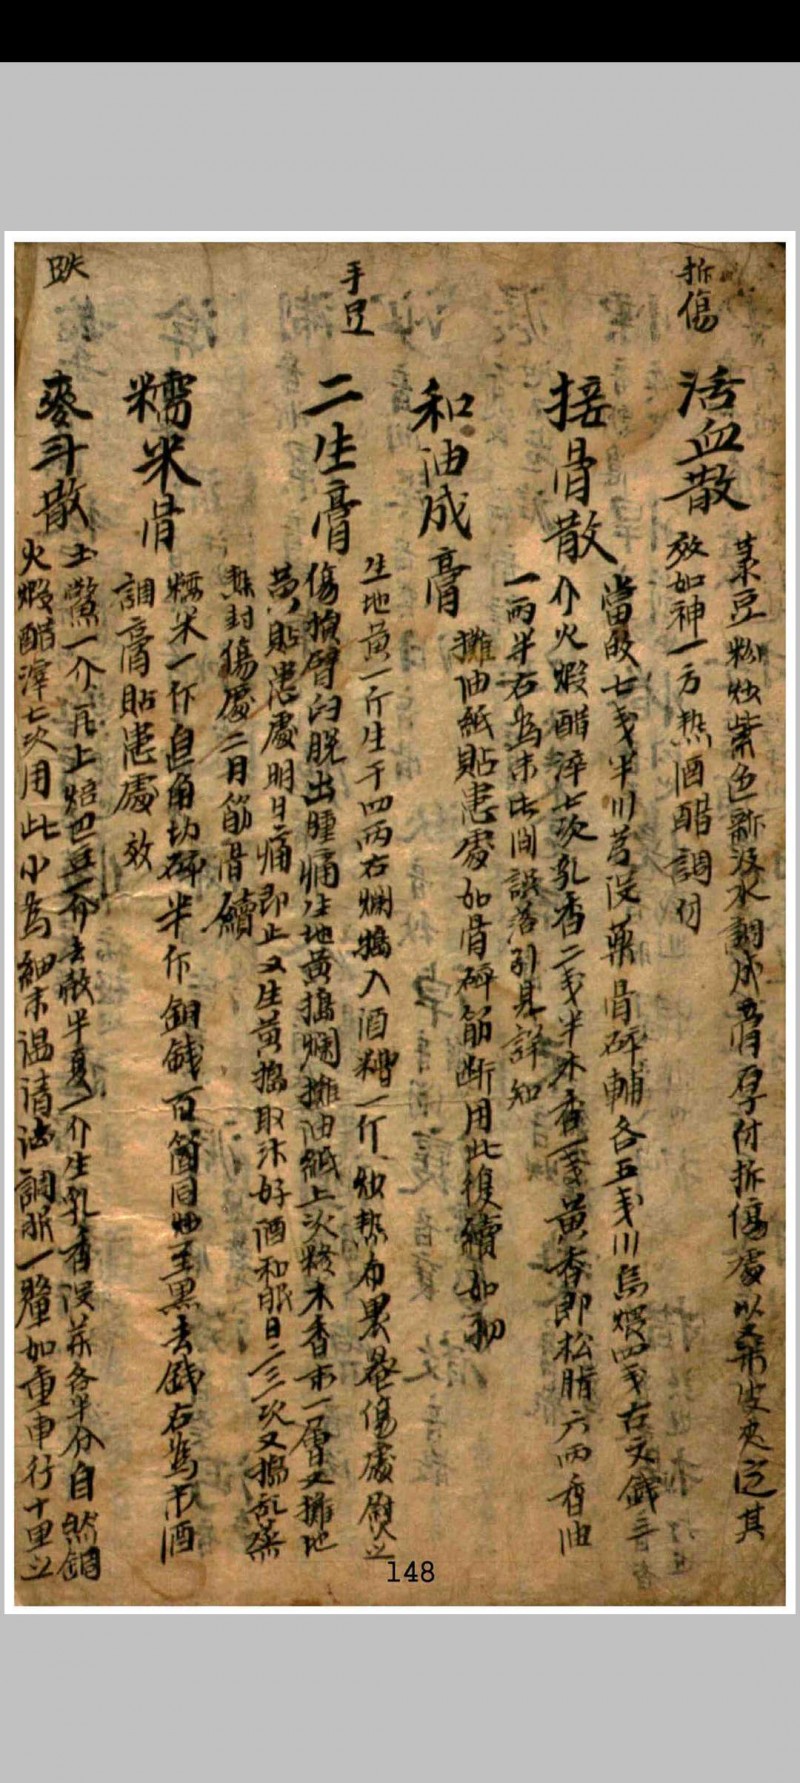 折傷
活血散
菉豆粉炒紫色新汲水調成膏厚付折傷處以桑皮夾定其
效如神一方热酒醋調付
接骨散
當皈七戔半川芎沒藥骨碎輔各五戔川烏煨四戔古文錢三
介火煅醋淬七次乳香二戔半木香一戔黃香即松脂六兩香油
一兩半右為末此間誤落引見詳知
和油成膏
攤油紙貼患處如骨碎筋断用此復續如初
手足
二生膏
生地黃一斤生干四兩右爛搗入酒糟一斤炒热布褁罨傷處熨之
傷損臂臼脱出腫痛生地黃搗爛攤油紙上次糝木香末一層又攤地
黃貼患處明日痛即止又生黃搗取汁好酒和服日二三次又搗乱蒸
熱封傷處二月筋骨續
糯米膏
糯米一作皀角切碎半作銅錢百箇同炒至黑去錢右為末酒
調膏貼患處效
跌
麥斗散
土鱉一介瓦上焙巴豆一介去殼半夏一介生乳香沒藥各半分自然銅
火煅醋淬七次用此小為細末温清酒調服一釐如重車行十里之
148